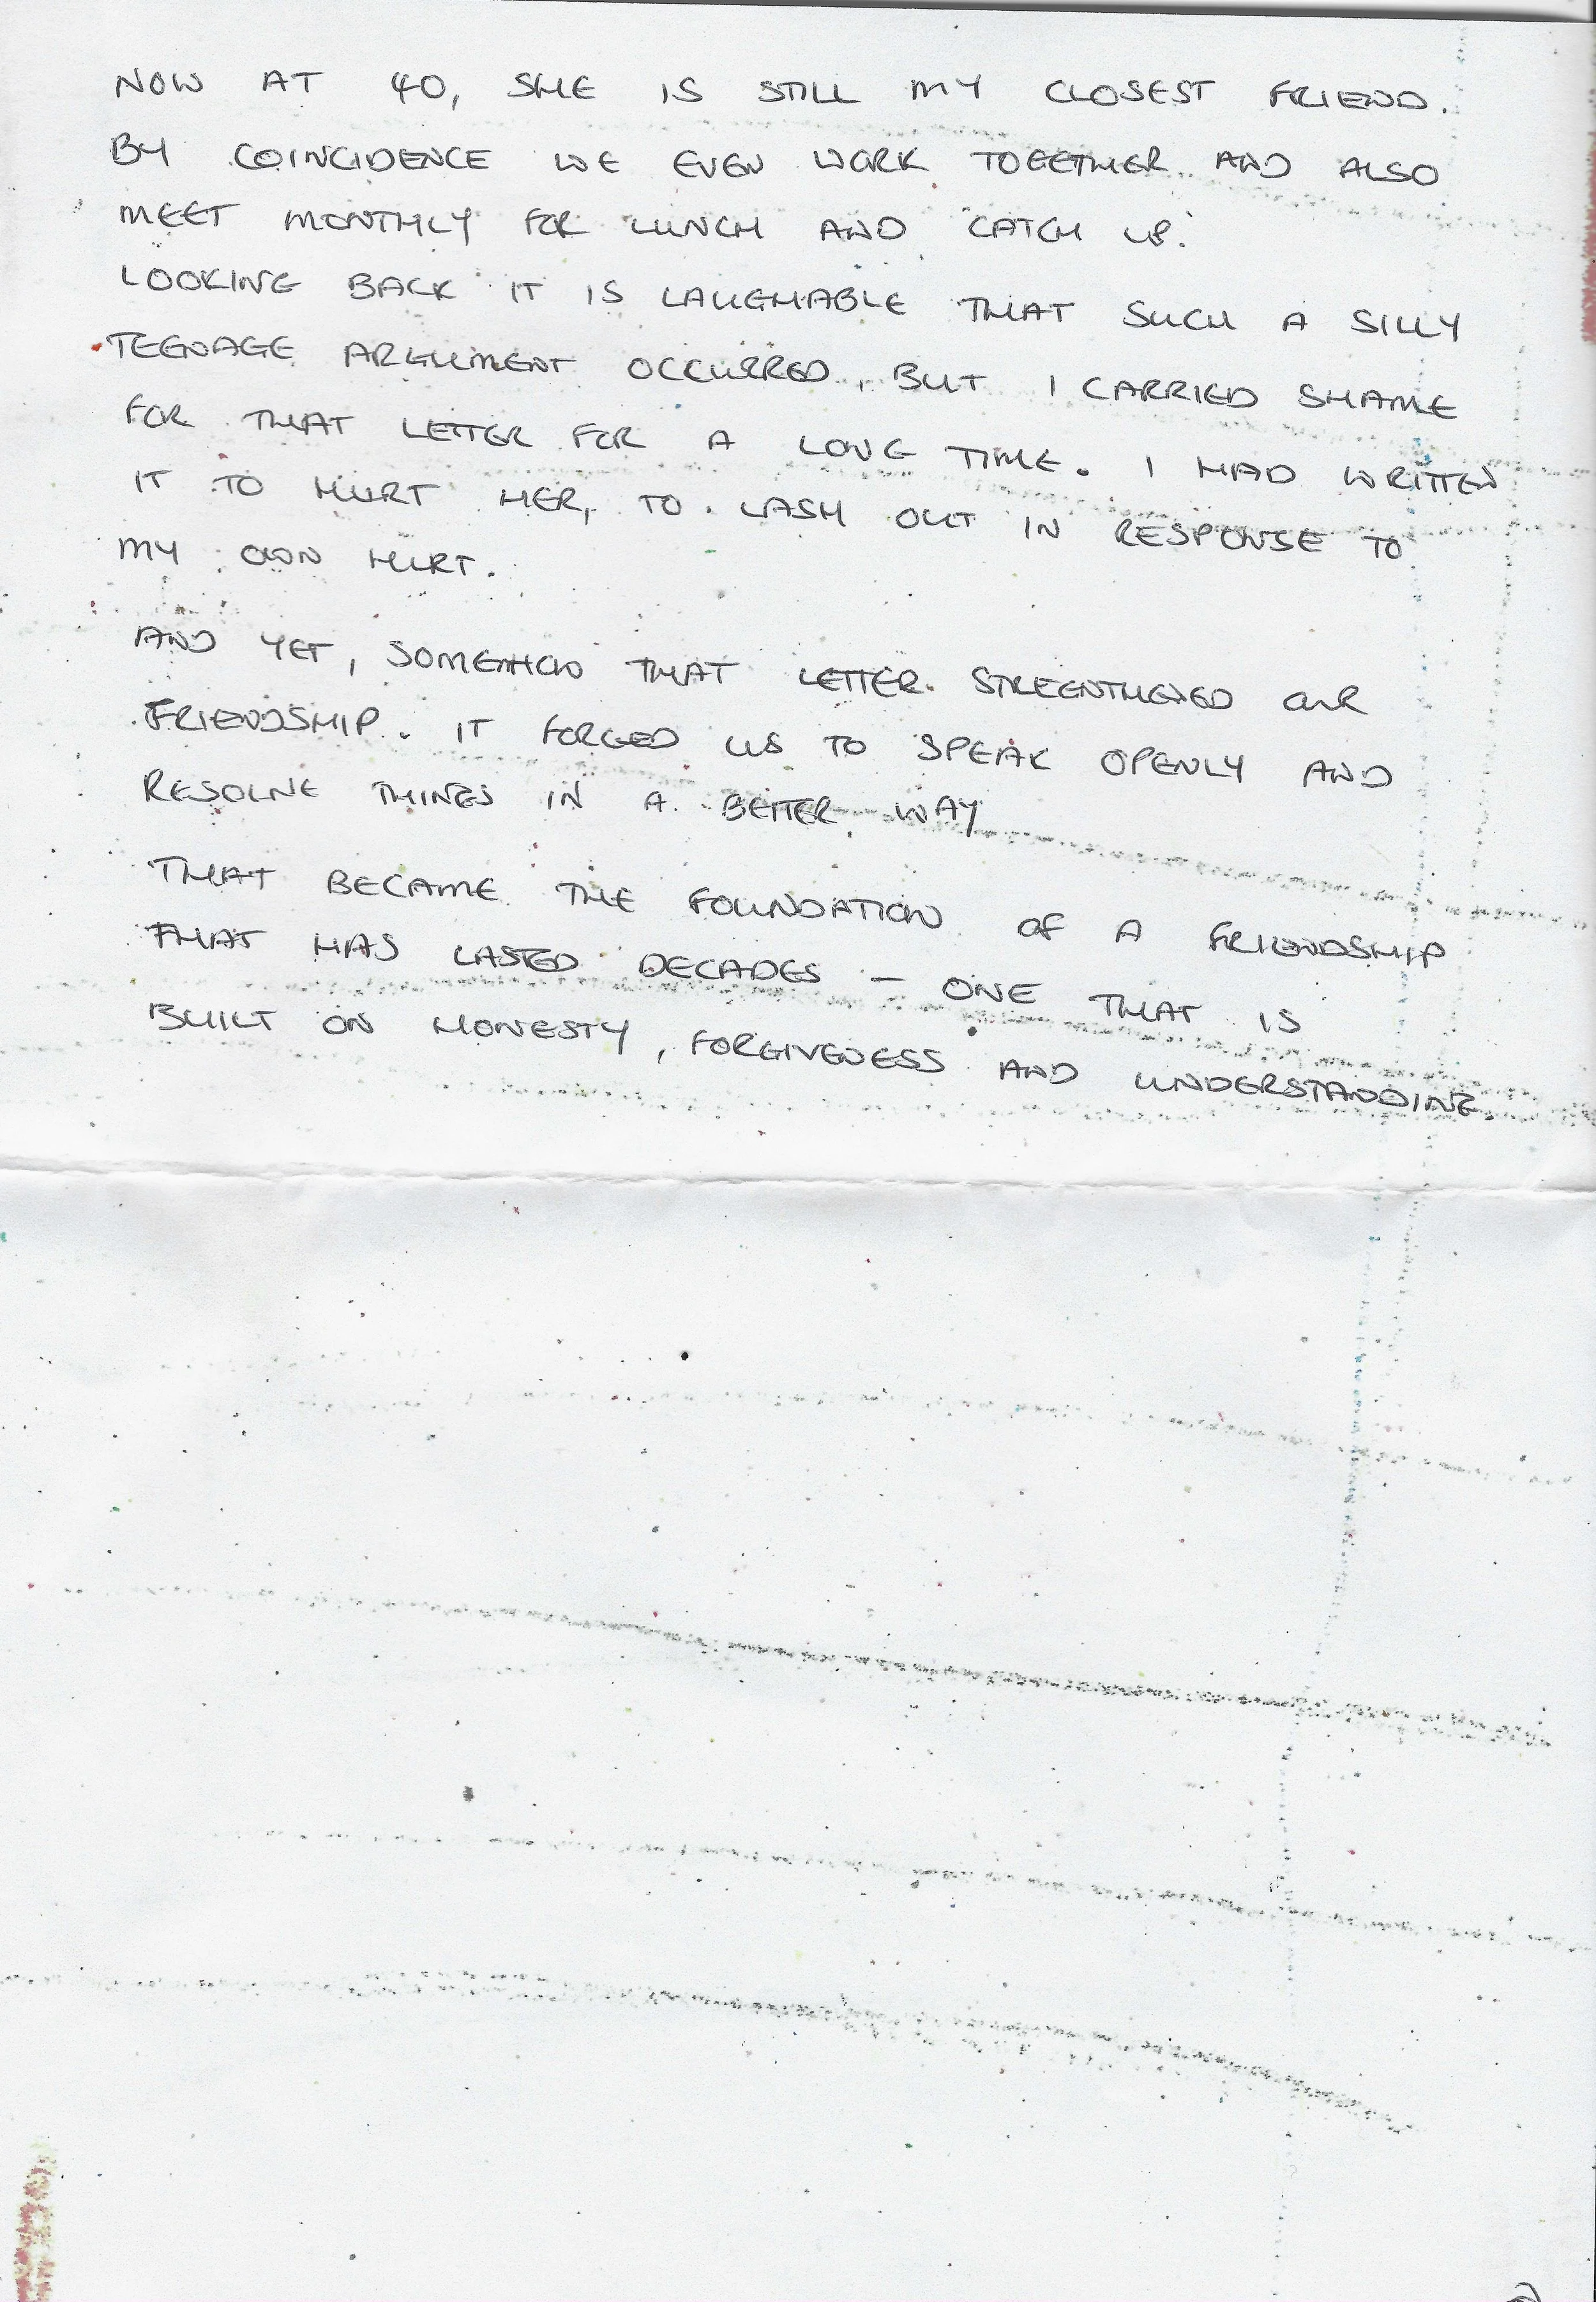 NOW AT 40, SHE IS STILL MY CLOSEST FRIEND.
BY COINCIDENCE WE EVEN WORK TOGETHER AND ALSO
MEET MONTHLY FOR LUNCH AND 'CATCH UP.'
LOOKING BACK IT IS LAUGHABLE THAT SUCH A SILLY
TEENAGE ARGUMENT OCCURRED, BUT I CARRIED SHAME
FOR THAT LETTER FOR A LONG TIME. I HAD WRITTEN
IT TO HURT HER, TO LASH OUT IN RESPONSE TO
MY OWN HURT.
AND YET, SOMEHOW THAT LETTER STREENTHENED OUR
FRIENDSHIP. IT FORGED US TO SPEAK OPENLY AND
RESOLVE THINGS IN A BETTER WAY
THAT BECAME THE FOUNDATION OF A FRIENDSHIP
THAT HAS LASTED DECADES – ONE THAT IS
BUILT ON HONESTY, FORGIVENESS AND UNDERSTANDING.